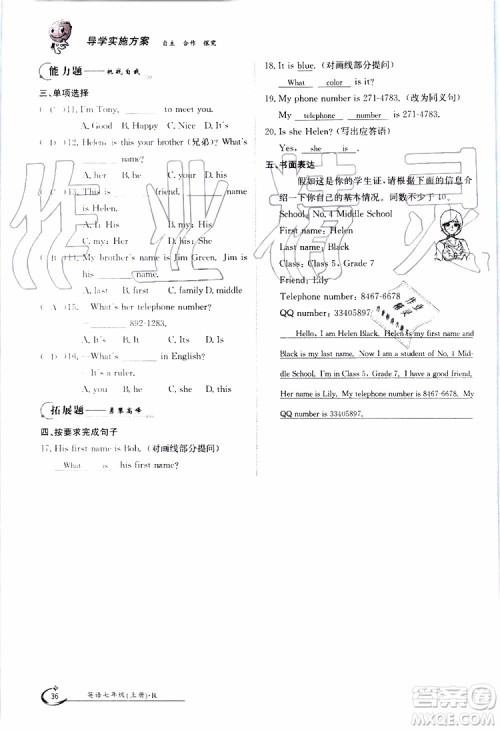 导学实施方案 自主 合作 探究
能力题——挑战自我
三、单项选择
( C )11. I'm Tony, to meet you.
A. Good B. Happy C. Nice D. Glad
( D )12. Helen, is this your brother (兄弟)?
( C )13. This is friend, name
is Helen.
A. His
C. my; Her D. my; His
My brother's name is Jim Green. Jim is
his name.
A. first B. last C. family D. middle
( A )15. — What's her telephone number?
— 892-1283.
A. It's
( D )16. — What's in English?
— It's a ruler.
A. last B. first C. family D. that
拓展题——勇攀高峰
四、按要求完成句子
17. His first name is Bob. (对画线部分提问)
What is his first name?
18. It is blue. (对画线部分提问)
What color is it?
19. My phone number is 271-4783. (改为同义句)
My telephone number is 271-4783.
20. Is she Helen? (写出应答语)
Yes, she is.
五、书面表达
假如这是你的学生证, 请根据上面的信息介
绍一下你自己的基本情况。词数不少于 10。
School: No. 4 Middle School
First name: Helen
Last name: Black
Class: Class 5, Grade 7
Friend: Lily
Telephone number: 8467-6678
QQ number: 33405897
Hello, I am Helen Black. Helen is my first name and
Black is my last name. Now I am a student of No. 4 Mid-
dle School. I'm in Class 5, Grade 7. I have a good friend.
Her name is Lily. My telephone number is 8467-6678. My
QQ number is 33405897.
36 英语七年级(上册)·R
作业精灵